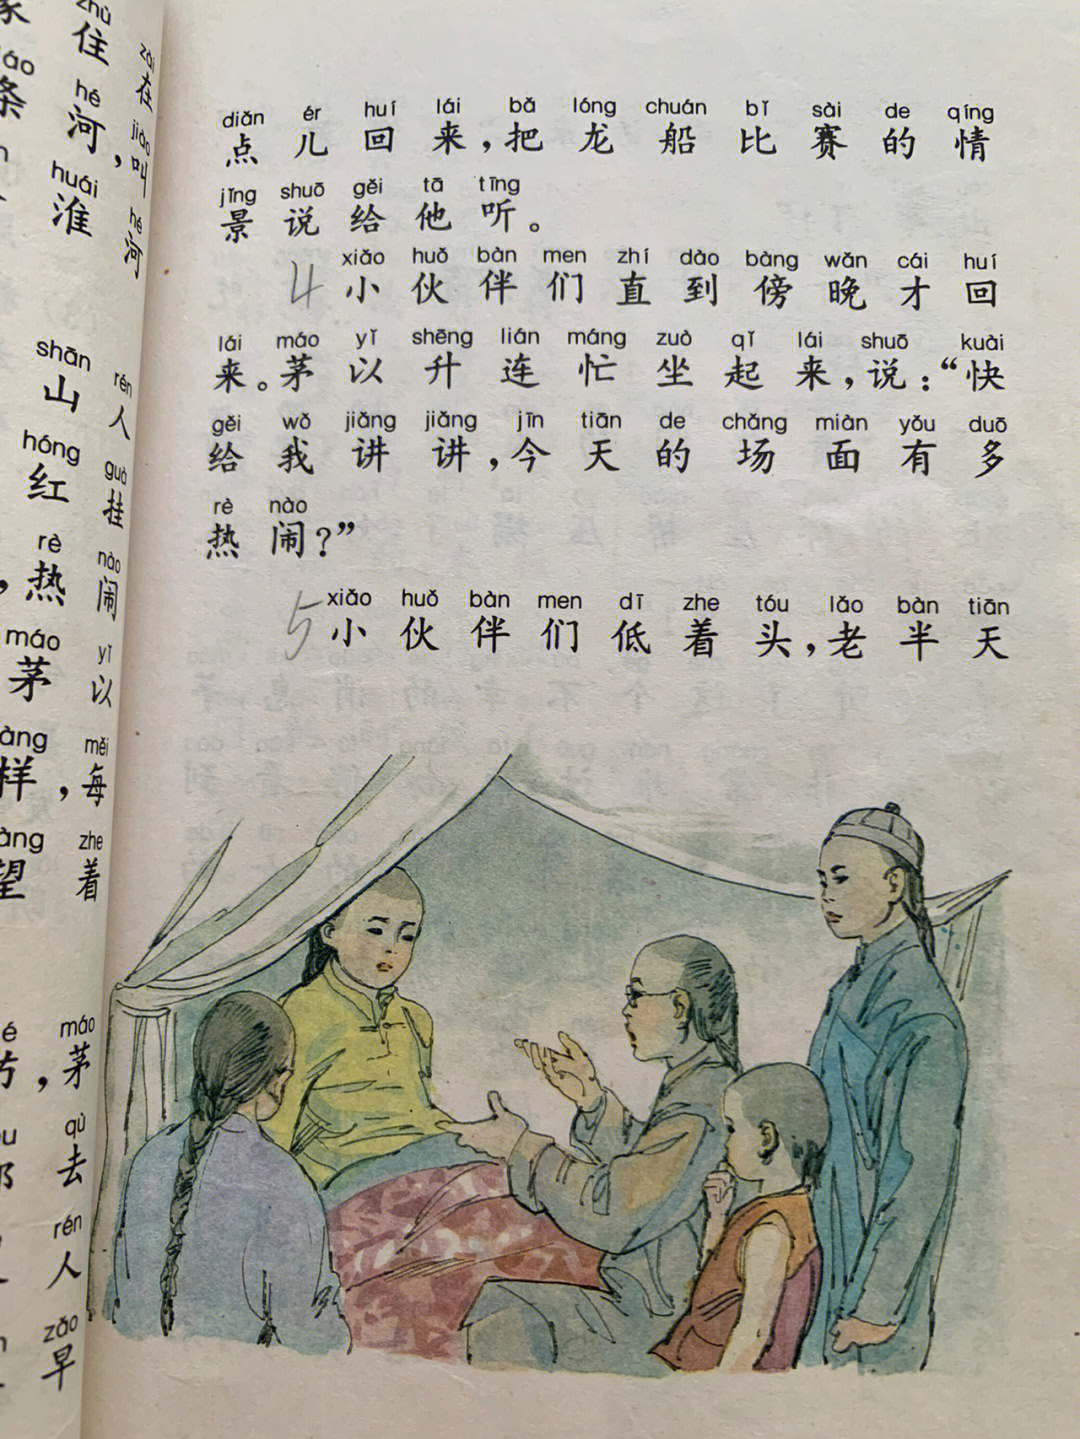 diǎn ér huí lái bǎ lóng chuán bǐ sài de qíng
点儿回来，把龙船比赛的情
jǐng shuō gěi tā tīng
景说给他听。
xiǎo huǒ bàn men zhí dào bàng wǎn cái huí
4 小伙伴们直到傍晚才回
lái máo yǐ shēng lián máng zuò qǐ lái shuō kuài
来。茅以升连忙坐起来，说：“快
gěi wǒ jiǎng jiǎng jīn tiān de chǎng miàn yǒu duō
给我讲讲，今天的场面有多
rè nào
热闹？”
xiǎo huǒ bàn men dī zhe tóu lǎo bàn tiān
5 小伙伴们低着头，老半天
zhù zài
住 在
hé jiào
河，叫
huái hé
淮 河
shān rén
山 人
hóng guà
红 挂
rè nào
热 闹
máo yǐ
茅 以
měi
样，每
zhe
望 着
máo
，茅
qù
去
rén
人
zǎo
早